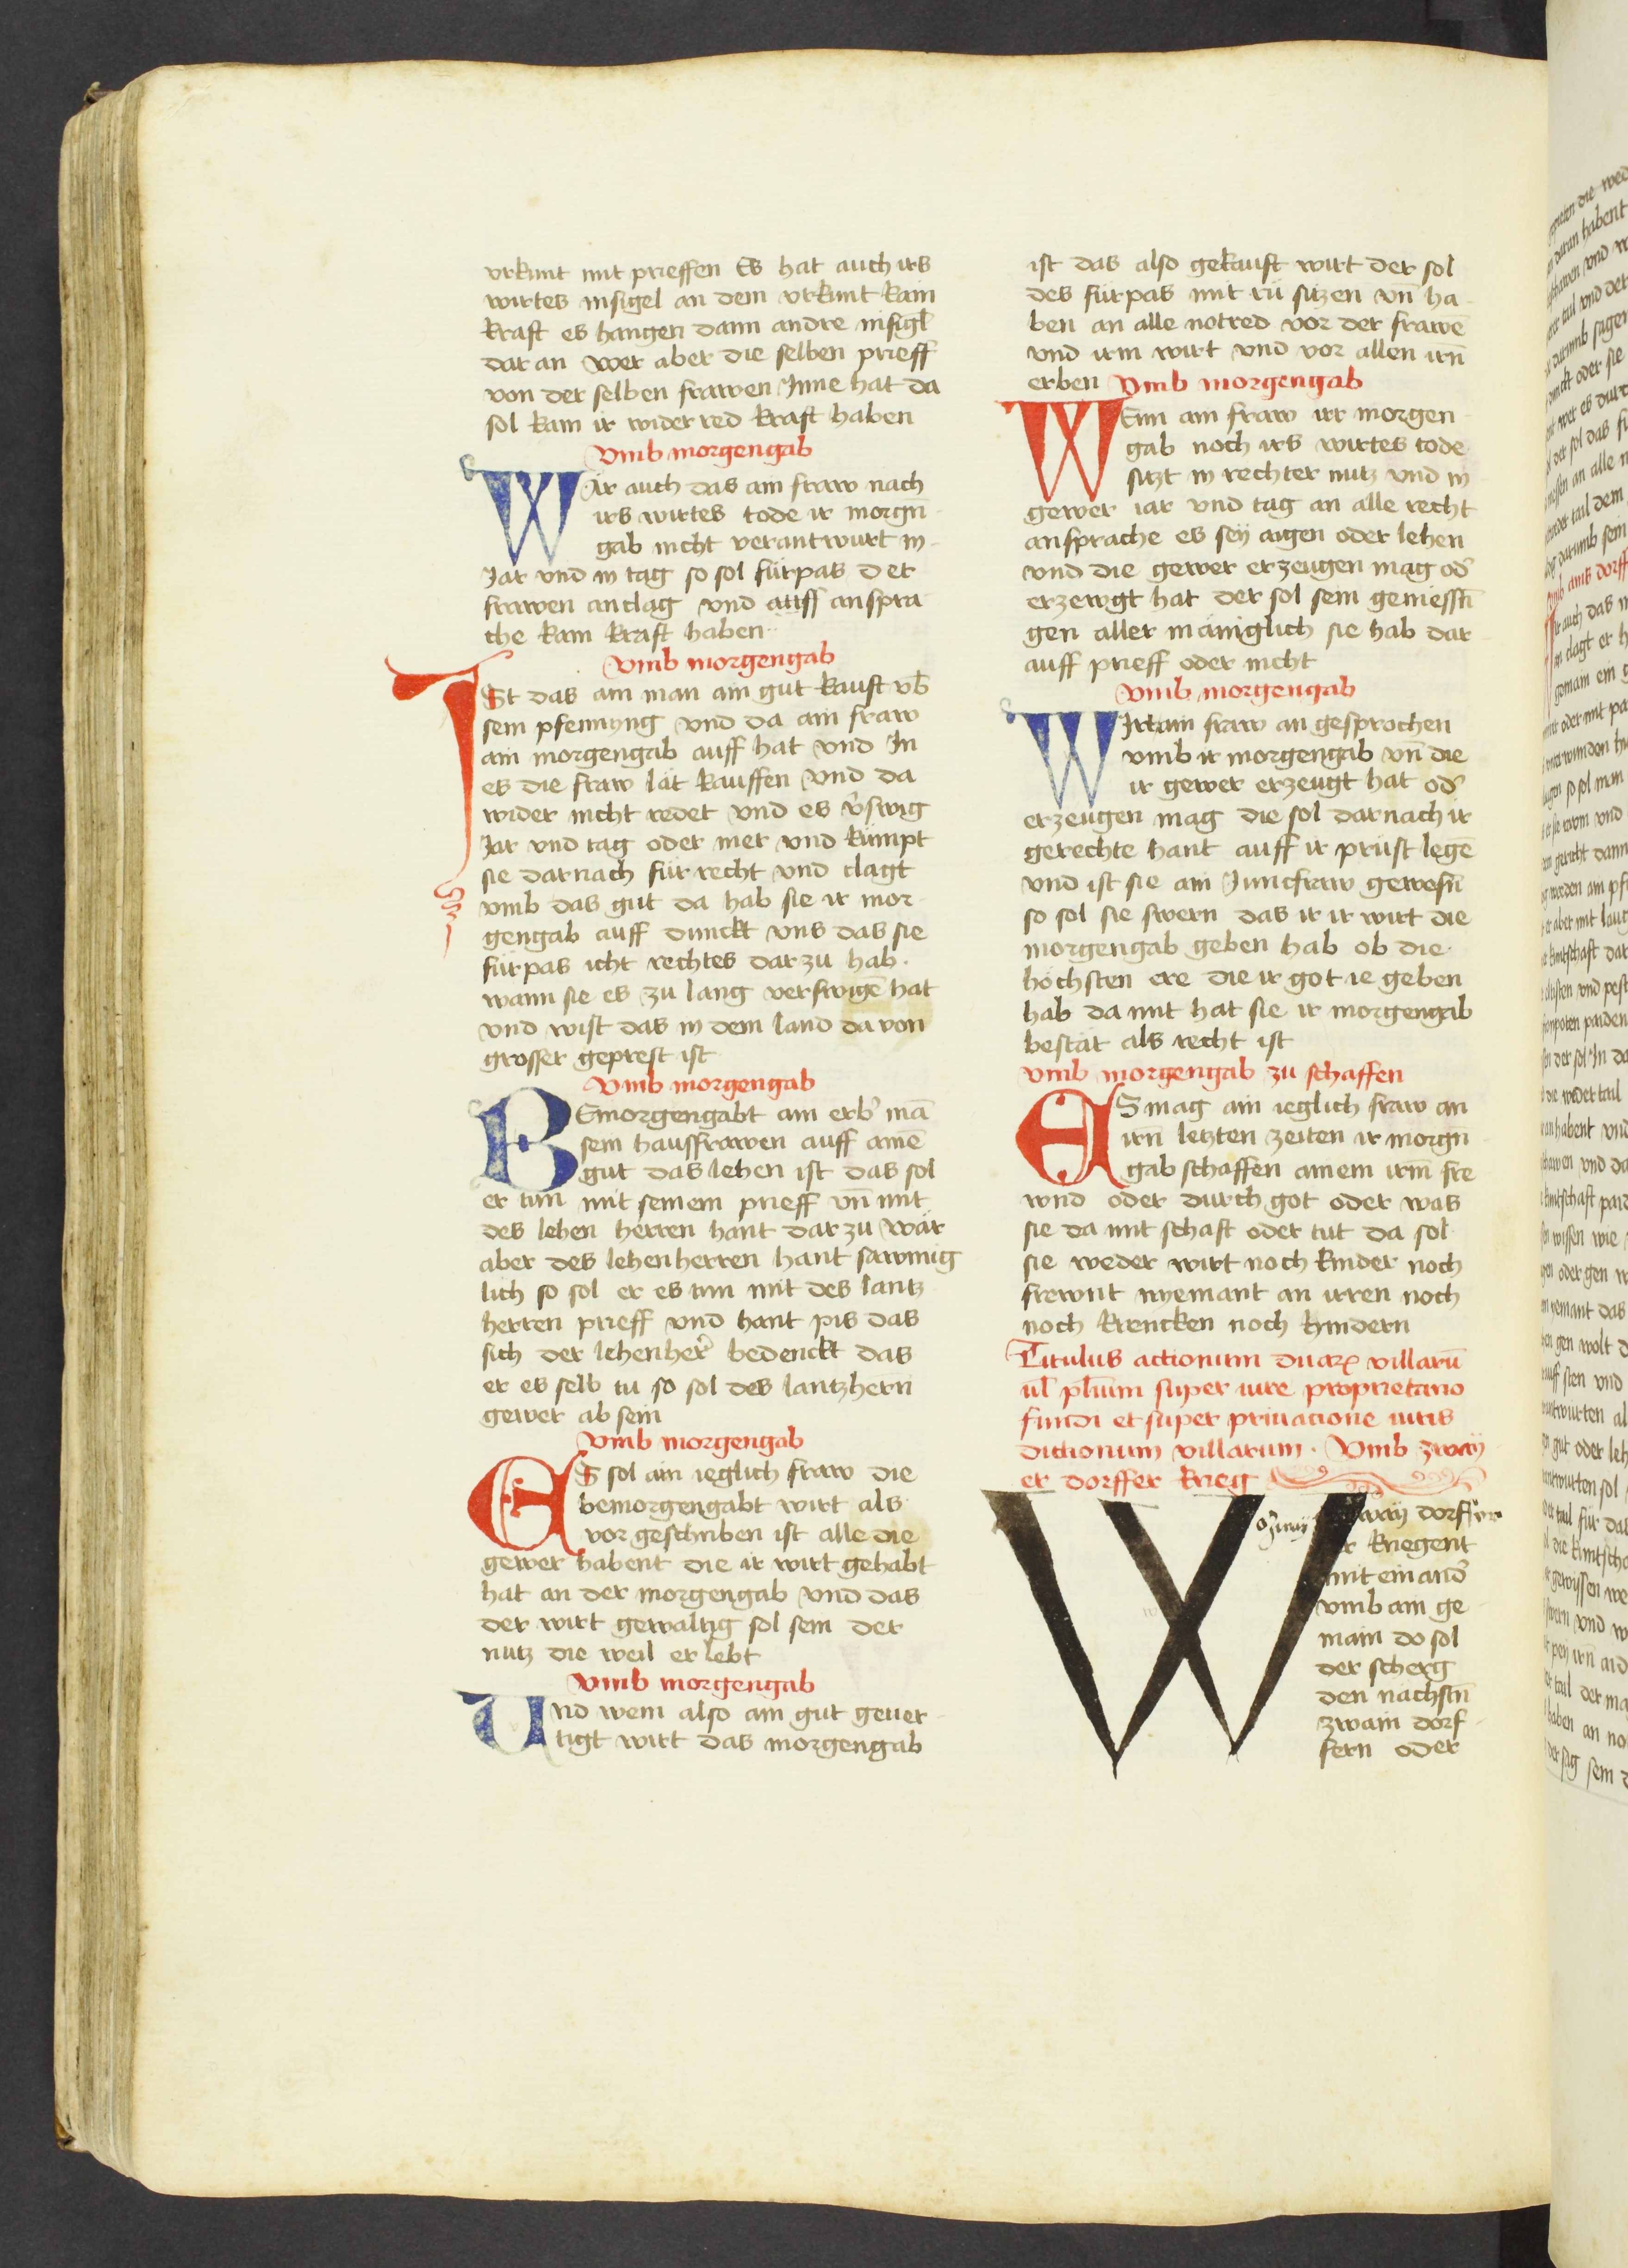 vrkunt mit prieffen Es hat auch irs
wirtes insigel an dem vrkunt kain
kraft es hangen dann andre insigl̄
dar an wer aber die selben prieff
von der selben frawen Inne hat da
sol kain ir wider red kraft haben
Vmb morgengab
WÄr auch das ain fraw nach
irs wirtes tode ir morgn̄
gab nicht verantwurt in
Jar vnd in tag so sol fürpas der
frawen anclag vnd auff anspra
che kain kraft haben
Vmb morgengab
ISt das ain man ain gut kauft vb̄
sein pfennyng vnd da ain fraw
ain morgengab auff hat vnd In
es die fraw lät kauffen vnd da
wider nicht redet vnd es v̄swig
Jar vnd tag oder mer vnd kümpt
sie darnach für recht vnd clagt
vmb das gut da hab sie ir mor
gengab auff dunckt vns das sie
fürpas icht rechtes dar zu hab.
wann sie es zu lang verswigē hat
vnd wist das in dem land da von
grosser geprest ist
Vmb morgengab
BEmorgengabt ain erb' mā
sein haussfrawen auff ainē
gut das lehen ist das sol
er tun mit seinem prieff vn̄ mit
des lehen herren hant dar zu wär
aber des lehenherren hant sawmig
lich so sol er es tun mit des lantz
herren prieff vnd hant pis das
sich der lehenher' bedenckt das
er es selb tu so sol des lantzhern
gewer ab sein
Vmb morgengab
ES sol ain ieglich fraw die
bemorgengabt wirt als
vor geschriben ist alle die
gewer habent die ir wirt gehabt
hat an der morgengab vnd das
der wirt gewaltig sol sein der
nutz die weil er lebt
Vmb morgengab
Vnd wem also ain gut geuer
tigt wirt das morgengab
ist das also gekauft wirt der sol
des fürpas mit rü sitzen vn̄ ha
ben an alle notred vor der frawē
vnd irm wirt vnd vor allen irn̄
erben Vmb morgengab
WEnn ain fraw irr morgen
gab noch irs wirtes tode
sitzt in rechter nutz vnd in
gewer iar vnd tag an alle recht
ansprache es sey aigen oder lehen
vnd die gewer erzeugen mag od'
erzewgt hat der sol sein geniessn̄
gen aller mäniglich sie hab dar
auff prieff oder nicht
Vmb morgengab
WIrt ain fraw an gesprochen
vmb ir morgengab vn̄ die
ir gewer erzeugt hat od'
erzeugen mag die sol darnach ir
gerechte hant auff ir prüst legē
vnd ist sie ain Junckfraw gewesn̄
so sol sie swern das ir ir wirt die
morgengab geben hab ob die
höchsten ere die ir got ie geben
hab da mit hat sie ir morgengab
bestät als recht ist
Vmb morgengab zu schaffen
ES mag ain ieglich fraw an
irn̄ letzten zeiten ir morgn̄
gab schaffen ainem irm̄ fre
wnd oder durch got oder was
sie da mit schaft oder tut da sol
sie weder wirt noch kinder noch
frewnt nyemant an irren noch
noch krencken noch hindern
Titulus actionum duaꝝ villarū
ul̄ pl̄ium super iure proprietario
fundi et super priuatione iuris
dictionum villarum. Vmb zway
er dorffer krieg
WO zway dorffer
kriegent
mit einand'
vmb ain ge
main do sol
der scherg
den nächstn̄
zwain dorf
fern oder